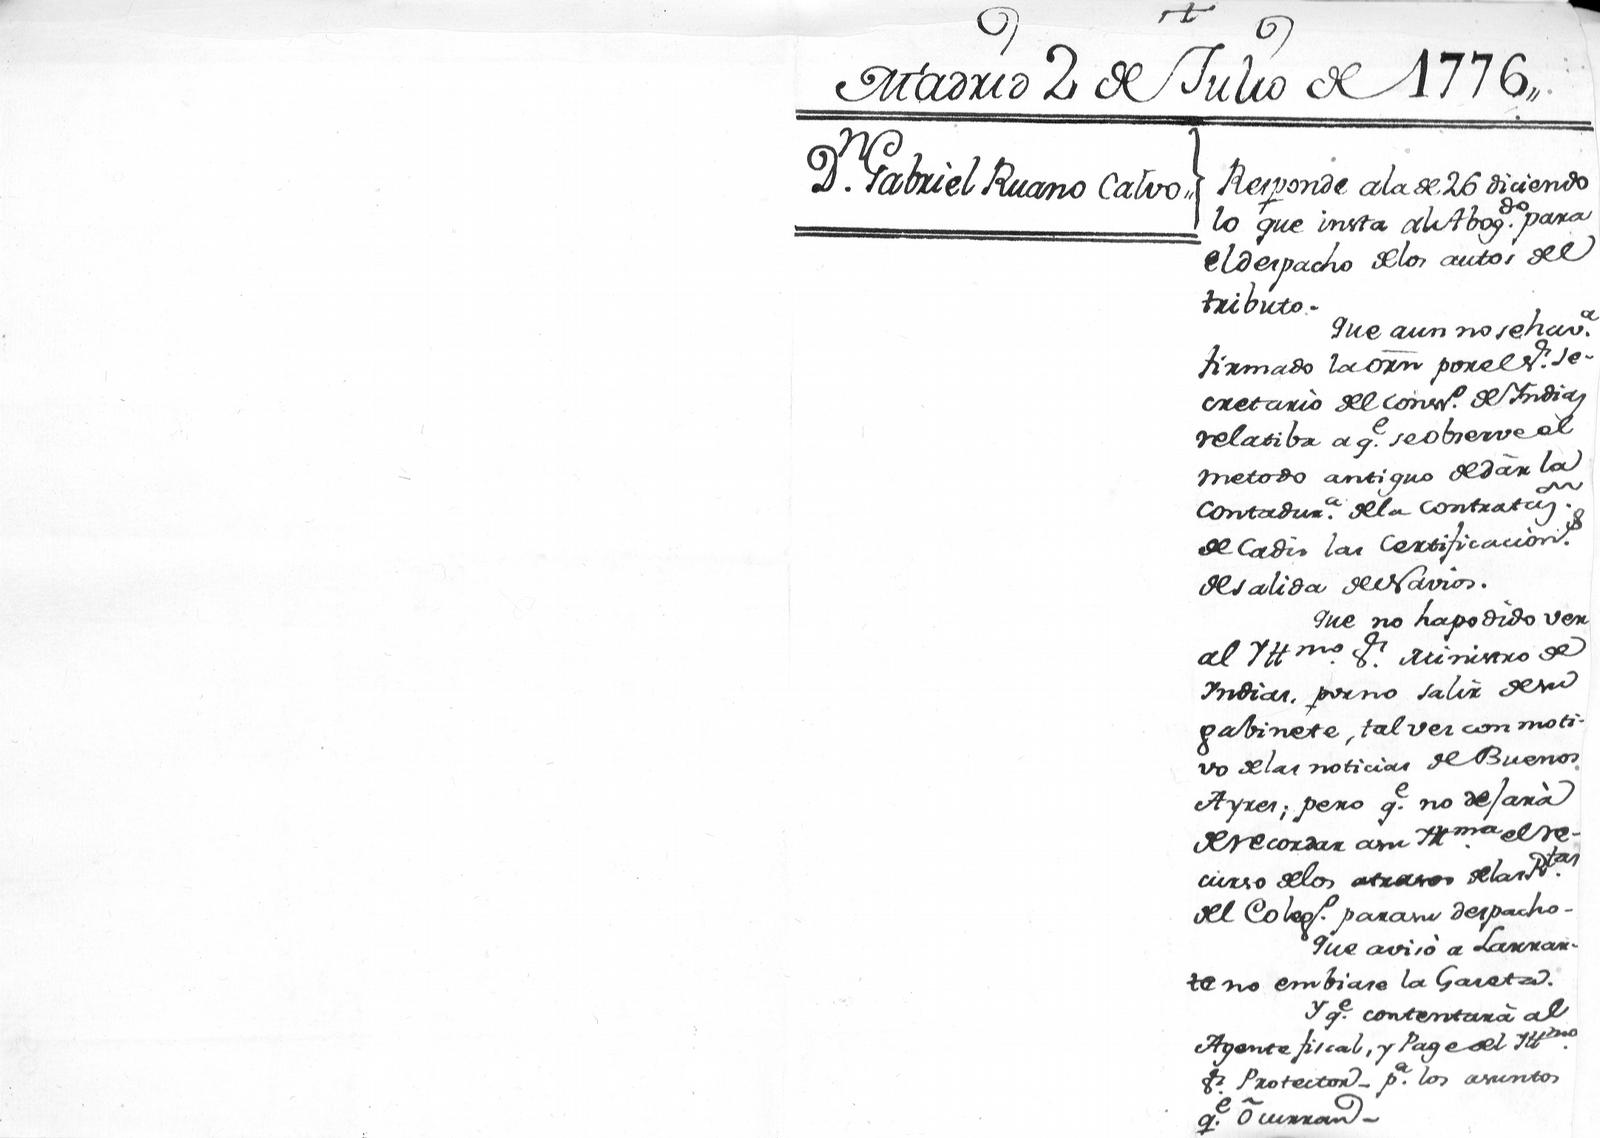 †
Madrid 2 de Julio de 1776,,
Dn. Gabriel Ruano Calvo,,
Responde a la de 26 diciendo
lo que insta al Abogdo. para
el despacho de los autos del
tributo-
Que aun no se hava.
firmado la orn por el Sr. Se-
cretario del Consejo. de Indias
relatiba a qe. se observe el
metodo antiguo de dàr la
Contadura. de la Contratan.
de Cadis las Certificacions.
de salida de Navios.
Que no ha podido ver
al Yllmo. Sr. Ministro de
Indias, por no salir de su
gabinete, tal ves con moti-
vo de las noticias de Buenos
Ayres; pero qe. no dejarà
de recordar a su Yllma. el re-
curso de los atrasos de las Rtas.
del Colego. para su despacho-
Que avisò a Larrar-
te no embiase la Gaseta.
Y qe. contentarà al
Agente fiscal, y Page del Yllmo.
Sr. Protector- pa. los asuntos
qe. ocurran-